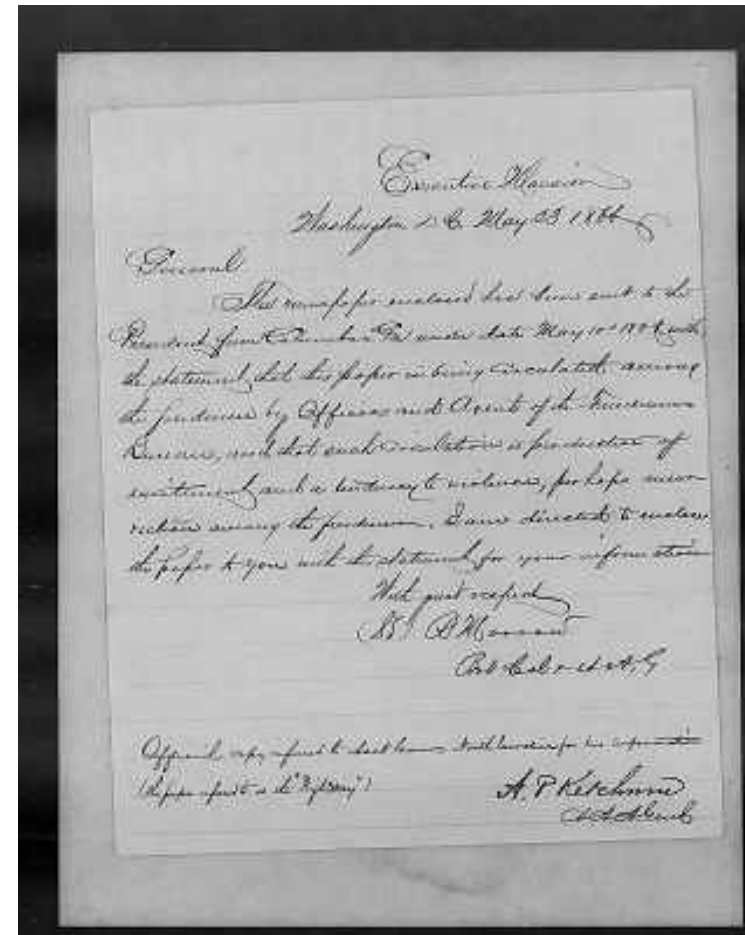 Executive Mansion
Washington D. C. May 23 1866
General
The newspaper enclosed has been sent to the
President from Columbus Ga under date May 10th 1866, with
the statement that this paper is being circulated among
the freedmen by Officers and Agents of the Freedmens
Bureau, and that such circulation is productive of
excitement and a tendency to violence, perhaps insur-
rection among the freedmen. I am directed to enclose
the paper to you with this statement for your information
With great respect
B Morrow
Bvt Col & A. A. G
Official copy for his information
(the paper is the
A. P. Ketchum
A A A Genl